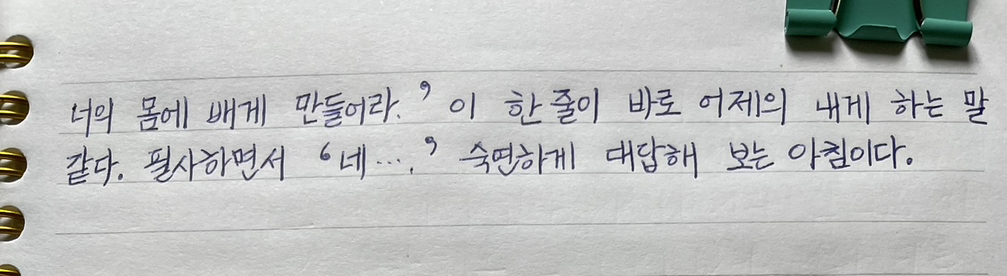 너의 몸에 배게 만들어라.’ 이 한 줄이 바로 어제의 내게 하는 말
같다. 필사하면서 ‘네....’ 숙연하게 대답해 보는 아침이다.